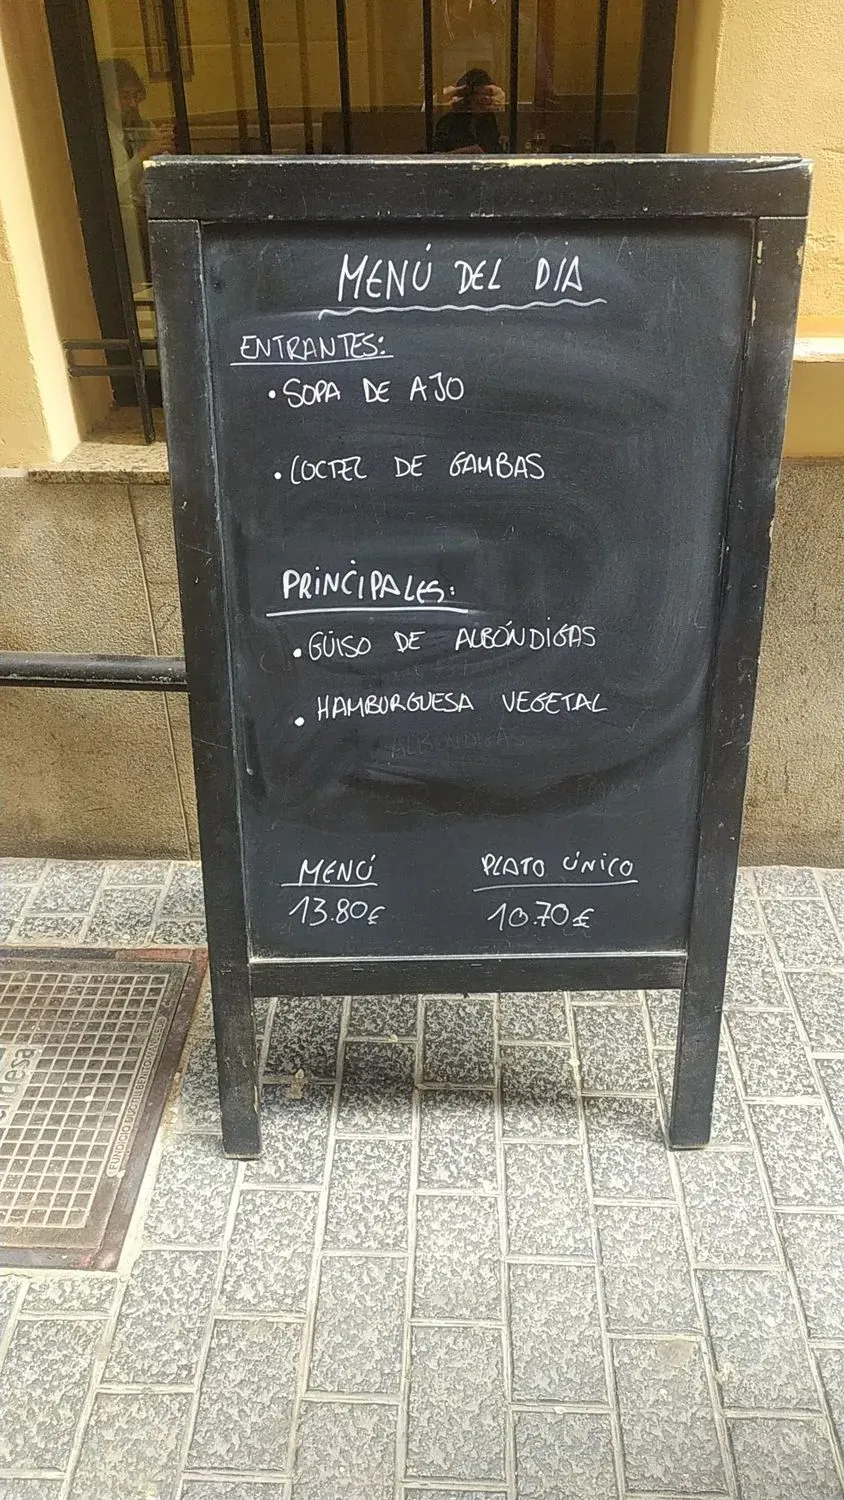 MENÚ DEL DÍA
ENTRANTES:
• SOPA DE AJO
• COCTEL DE GAMBAS
PRINCIPALES:
• GÜISO DE ALBÓNDIGAS
• HAMBURGUESA VEGETAL
ALBÓNDIGAS
MENÚ PLATO ÚNICO
13.80€ 10.70€